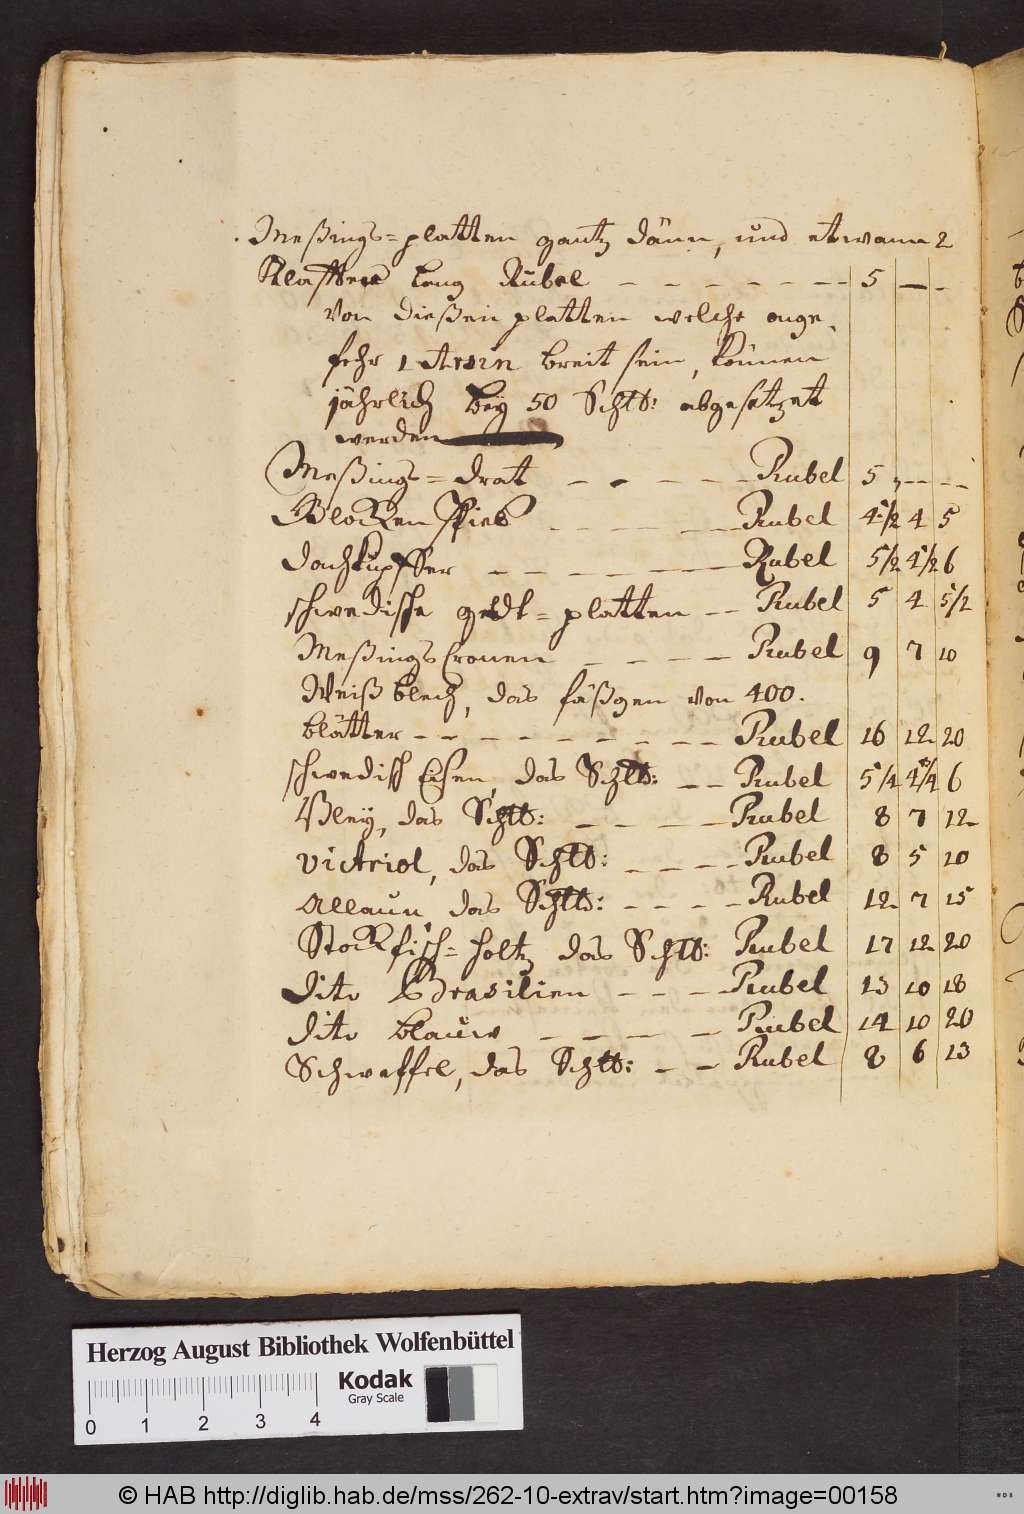 Meßings=platten gantz dünn, und etwann 2
Klaffter lang Rubel - - - - - - - 5 - -
Von dießen platten welche onge,
fehr 1 Arsin breit sein, können
jährlich bey 50 Schlb: abgesetzet
werden
Meßings=drat - - - - - Rubel 5 - - - -
Glocken Speis - - - - - Rubel 4 1/2 4 5
dachkupffer - - - - - - Rubel 5 1/2 4 1/2 6
schwedische geldt=platten - - Rubel 5 4 5 1/2
Meßings Cronen - - - - Rubel 9 7 10
Weiß blech, das fäßgen von 400.
blätter - - - - - - - - - Rubel 16 12 20
schwedisch Eisen, das Schlb: - - Rubel 5 1/4 4 3/4 6
Bley, das Schlb: - - - - Rubel 8 7 12
Victriol, das Schlb: - - - - Rubel 8 5 10
Allaun, das Schlb: - - - - Rubel 12 7 15
Stockfisch=holtz das Schlb: Rubel 17 12 20
Dito Brasilien - - - - Rubel 13 10 18
dito blauw - - - - Rubel 14 10 20
Schweffel, das Schlb: - - Rubel 8 6 13
Herzog August Bibliothek Wolfenbüttel
Kodak
Gray Scale
0 1 2 3 4
© HAB http://diglib.hab.de/mss/262-10-extrav/start.htm?image=00158